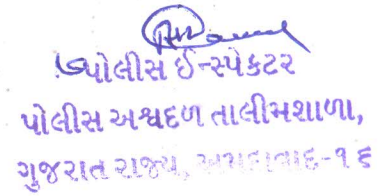 પોલીસ ઈન્સ્પેકટર
પોલીસ અશ્વદળ તાલીમશાળા,
ગુજરાત રાજ્ય, અમદાવાદ-૧૬